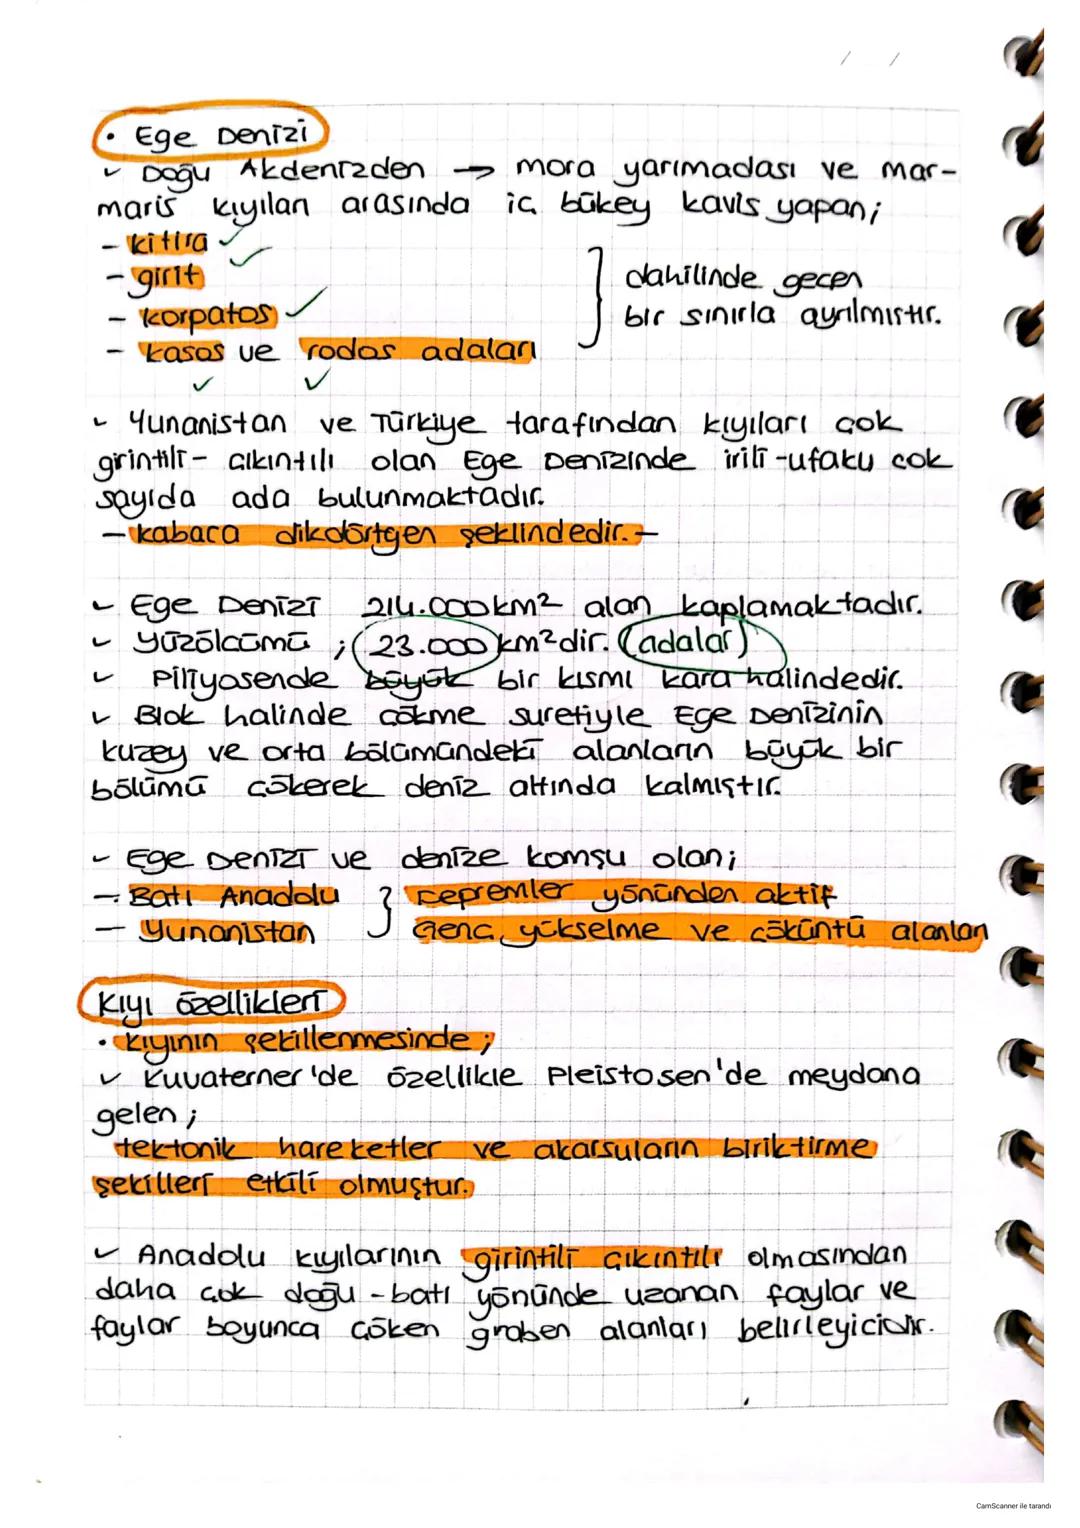 / /
• Ege Denizi
✓ Doğu Akdenizden → mora yarımadası ve mar-
maris kıyıları arasında iç bükey kavis yapan;
- kitira ✓
- girit ✓
- korpatos ✓
- kasos ve rodos adaları
✓ ✓
} dahilinde geçen
bir sınırla ayrılmıştır.
✓ Yunanistan ve Türkiye tarafından kıyıları çok
girintili- çıkıntılı olan Ege Denizinde irili-ufaklı çok
sayıda ada bulunmaktadır.
- kabaca dikdörtgen şeklindedir. -
✓ Ege Denizi 214.000 km² alan kaplamaktadır.
✓ Yüzölçümü ; 23.000 km²dir. (adalar)
✓ Piliyosende büyük bir kısmı kara halindedir.
✓ Blok halinde çökme suretiyle Ege Denizinin
kuzey ve orta bölümündeki alanların büyük bir
bölümü çökerek deniz altında kalmıştır.
✓ Ege Denizi ve denize komşu olan;
- Batı Anadolu } Depremler yönünden aktif
- Yunanistan Genç yükselme ve çöküntü alanları
Kıyı özellikleri
• kıyının şekillenmesinde ;
✓ Kuvaterner'de özellikle Pleistosen'de meydana
gelen ;
tektonik hareketler ve akarsuların biriktirme
şekilleri etkili olmuştur.
✓ Anadolu kıyılarının girintili çıkıntılı olmasından
daha çok doğu - batı yönünde uzanan faylar ve
faylar boyunca çöken graben alanları belirleyicidir.
CamScanner ile tarandı